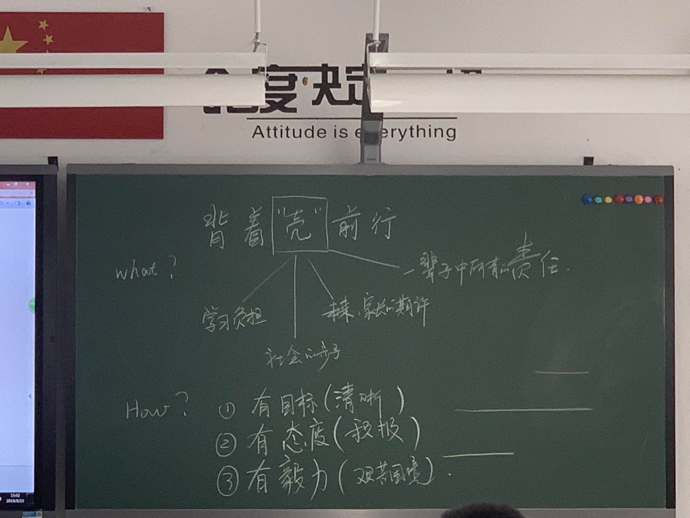 度决定
Attitude is e erything
背着"壳"前行
what?
一辈子中所有的责任.
学习负担
未来,家长的期许
社会的
How? ① 有目标(清晰)
② 有态度(积极)
③ 有毅力(艰苦困境).